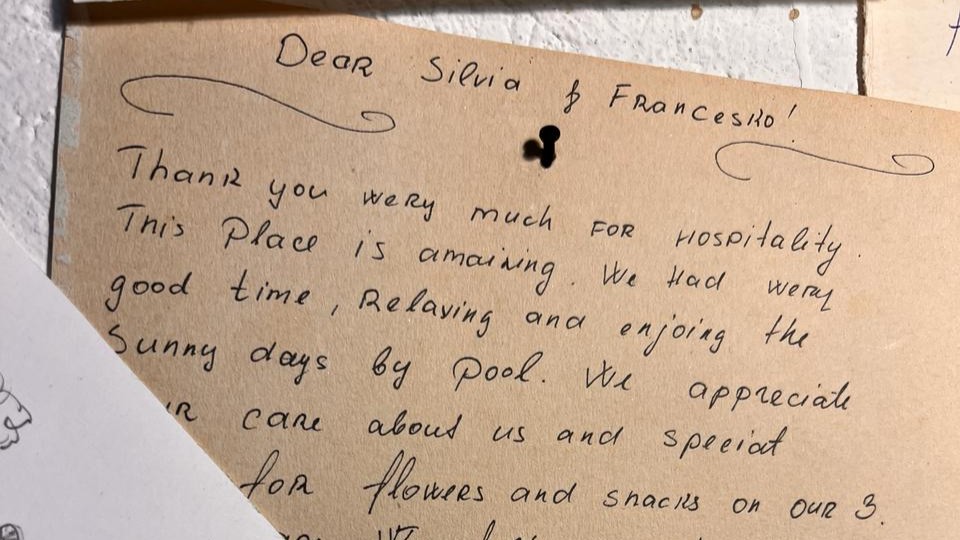 Dear Silvia & Francesko!
Thank you wery much for Hospitality.
This Place is amaining. We Had wery
good time, Relaving and enjoing the
Sunny days by pool. We appreciate
care about us and speciat
for flowers and snacks on our 3.
We